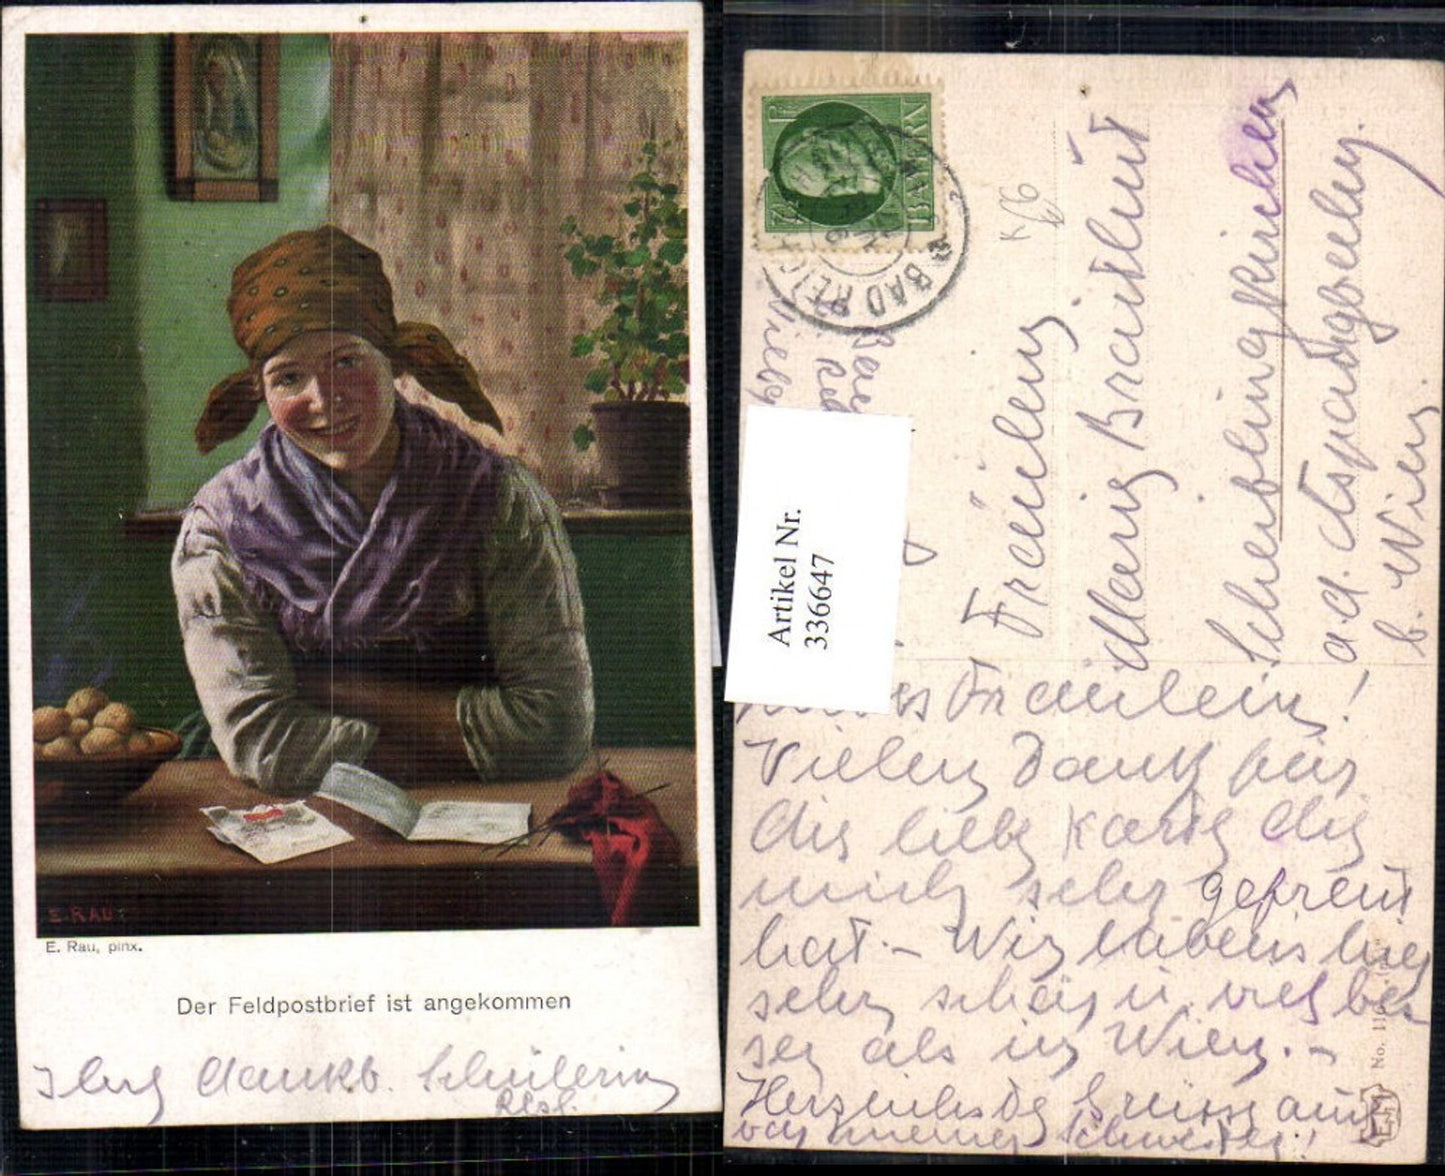 E. RAU
E. Rau, pinx.
Der Feldpostbrief ist angekommen
Ihre dankb. Schülerin
BAYERN
BAD REICH
Artikel Nr.
336647
Fräulein
Marie Brauthut
Scheiblingkirchen
a.d. Aspangbahn
b. Wien
Fräulein!
Vielen Dank für
die liebe Karte die
mich sehr gefreut
hat. – Wir haben's hier
sehr schön u. viel bes
ser als in Wien. –
Herzlichste Grüsse auch
von meiner Schwester!
No. 110